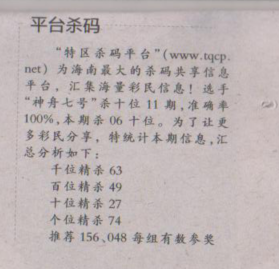 平台杀码
“特区杀码平台”(www.tqcp.
net) 为海南最大的杀码共享信息
平台，汇集海量彩民信息！选手
“神舟七号”杀十位 11 期，准确率
100%，本期杀 06 十位。为了让更
多彩民分享，特统计本期信息，汇
总分析如下：
千位精杀 63
百位精杀 49
十位精杀 27
个位精杀 74
推荐 156、048 每组有数参奖